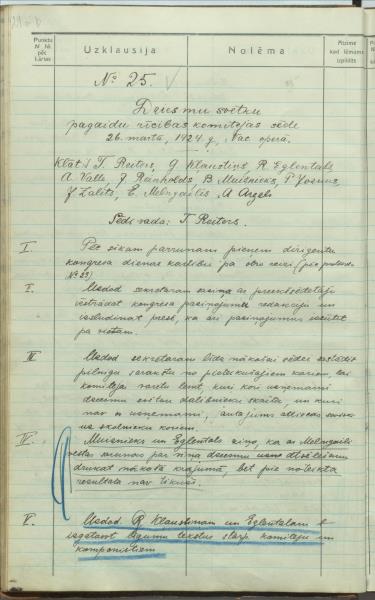 Punkts
№ №
pēc
kārtas
Uzklausija
Nolēma
Atzīme
kad lēmums
izpildīts
Punkts
№ №
pēc
kārtas
№ 25.
Dziesmu svētku
pagaidu rīcības komitejas sēde
26. martā, 1924 g., Nac. operā.
Klāt: T. Reiters, J. Klaustiņš, R. Eglentāls
A. Valle, J. Reinholds, B. Muižnieks, P. Jozuus,
J. Zālīts, E. Melngailis, A. Argals
Sēdi vada: T. Reiters.
I
Pēc sīkām pārrunām pieņem dirigentu
kongresa dienas kārtību pa otro reizi
№ 23)
I.
Uzdod sekretāram
izstrādāt kongresa paziņojuma redakciju un
izsludināt presē, kā arī paziņojumus izsūtīt
pa vietām.
III
Uzdod sekretāram līdz nākošai sēdei sastādīt
pilnīgu sarakstu no pieteikušajiem koriem, lai
komiteja varētu lemt, kuri kori uzņemami
dziesmu svētku dalībnieku skaitā, un kuri
nav uzņemami,
uz skolnieku koriem.
IV.
Muižnieks un Eglentāls ziņo, ka ar Melngaili
vestas sarunas par viņa dziesmu
drukāt nākošā krājumā, bet pie noteikta
rezultāta nav tikuši.
V.
Uzdod R. Klaustiņam un Eglentālam
izgatavot līgumu tekstus starp komiteju un
komponistiem